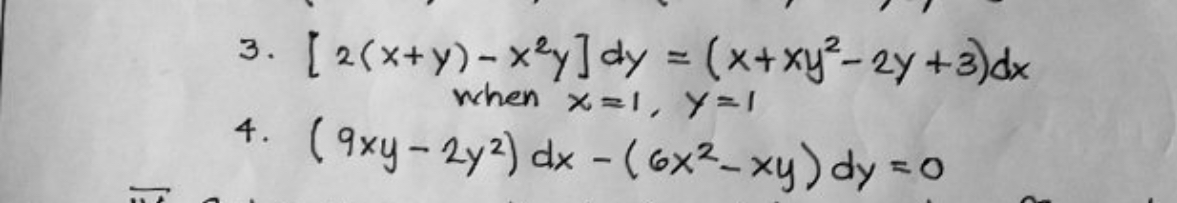 3. [2(x+y)-x²y]dy = (x+xy²-2y+3)dx
when x=1, y=1
4. (9xy-2y²)dx-(6x²-xy)dy=0